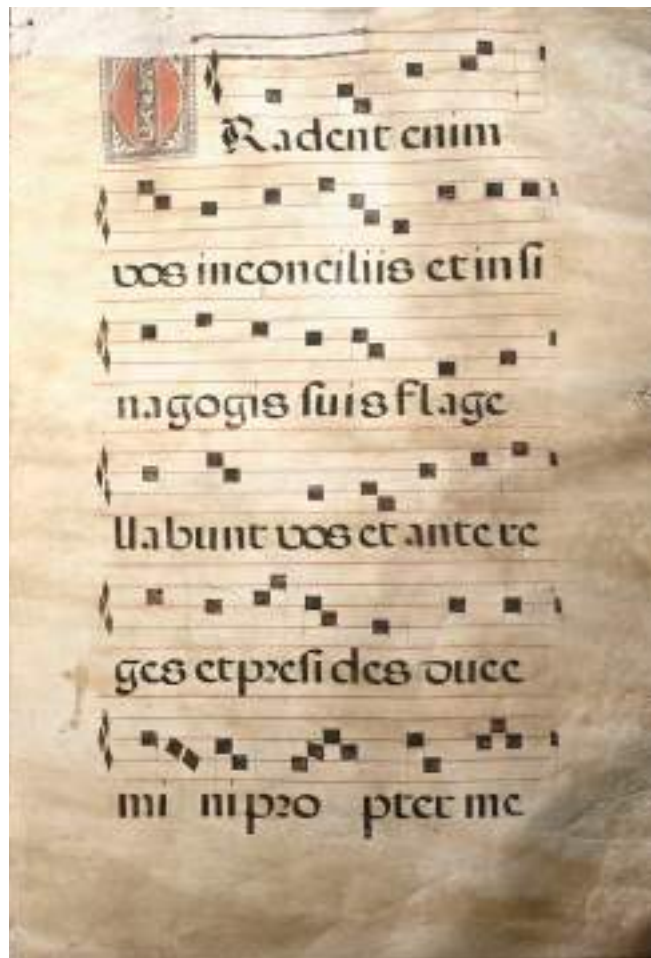 TRadent enim
vos inconciliis et in si
nagogis suis flage
llabunt vos et ante re
ges et presides duce
mi ni pro pter me